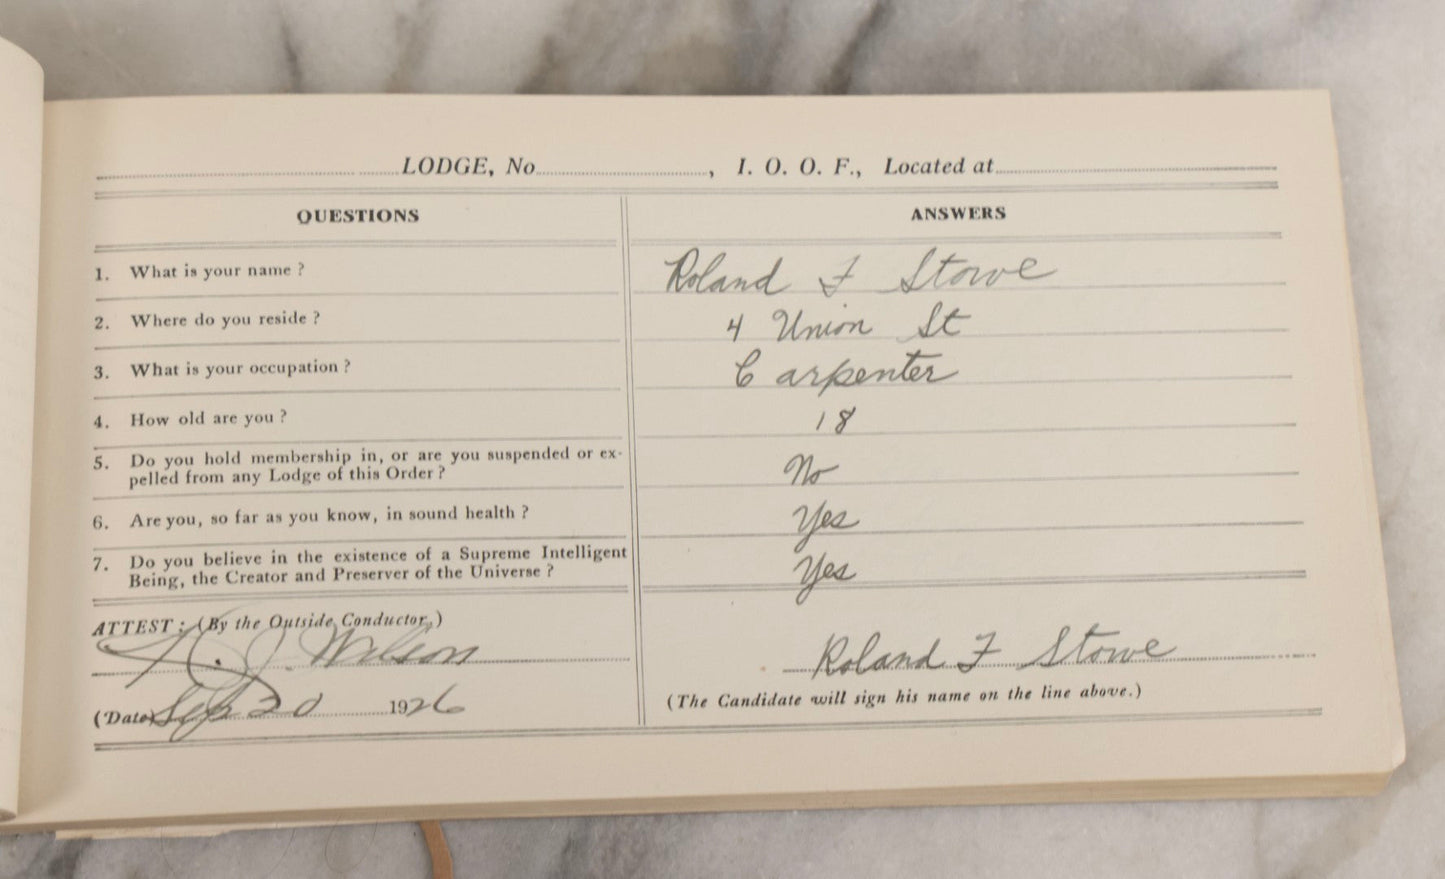 LODGE, No. , I. O. O. F., Located at
QUESTIONS ANSWERS
1. What is your name ? Roland F Stowe
2. Where do you reside ? 4 Union St
3. What is your occupation ? Carpenter
4. How old are you ? 18
5. Do you hold membership in, or are you suspended or ex-
pelled from any Lodge of this Order ? No
6. Are you, so far as you know, in sound health ? Yes
7. Do you believe in the existence of a Supreme Intelligent
Being, the Creator and Preserver of the Universe ? Yes
ATTEST : (By the Outside Conductor.)
J. Wilson Roland F Stowe
(Date) Sep 20 1926 (The Candidate will sign his name on the line above.)